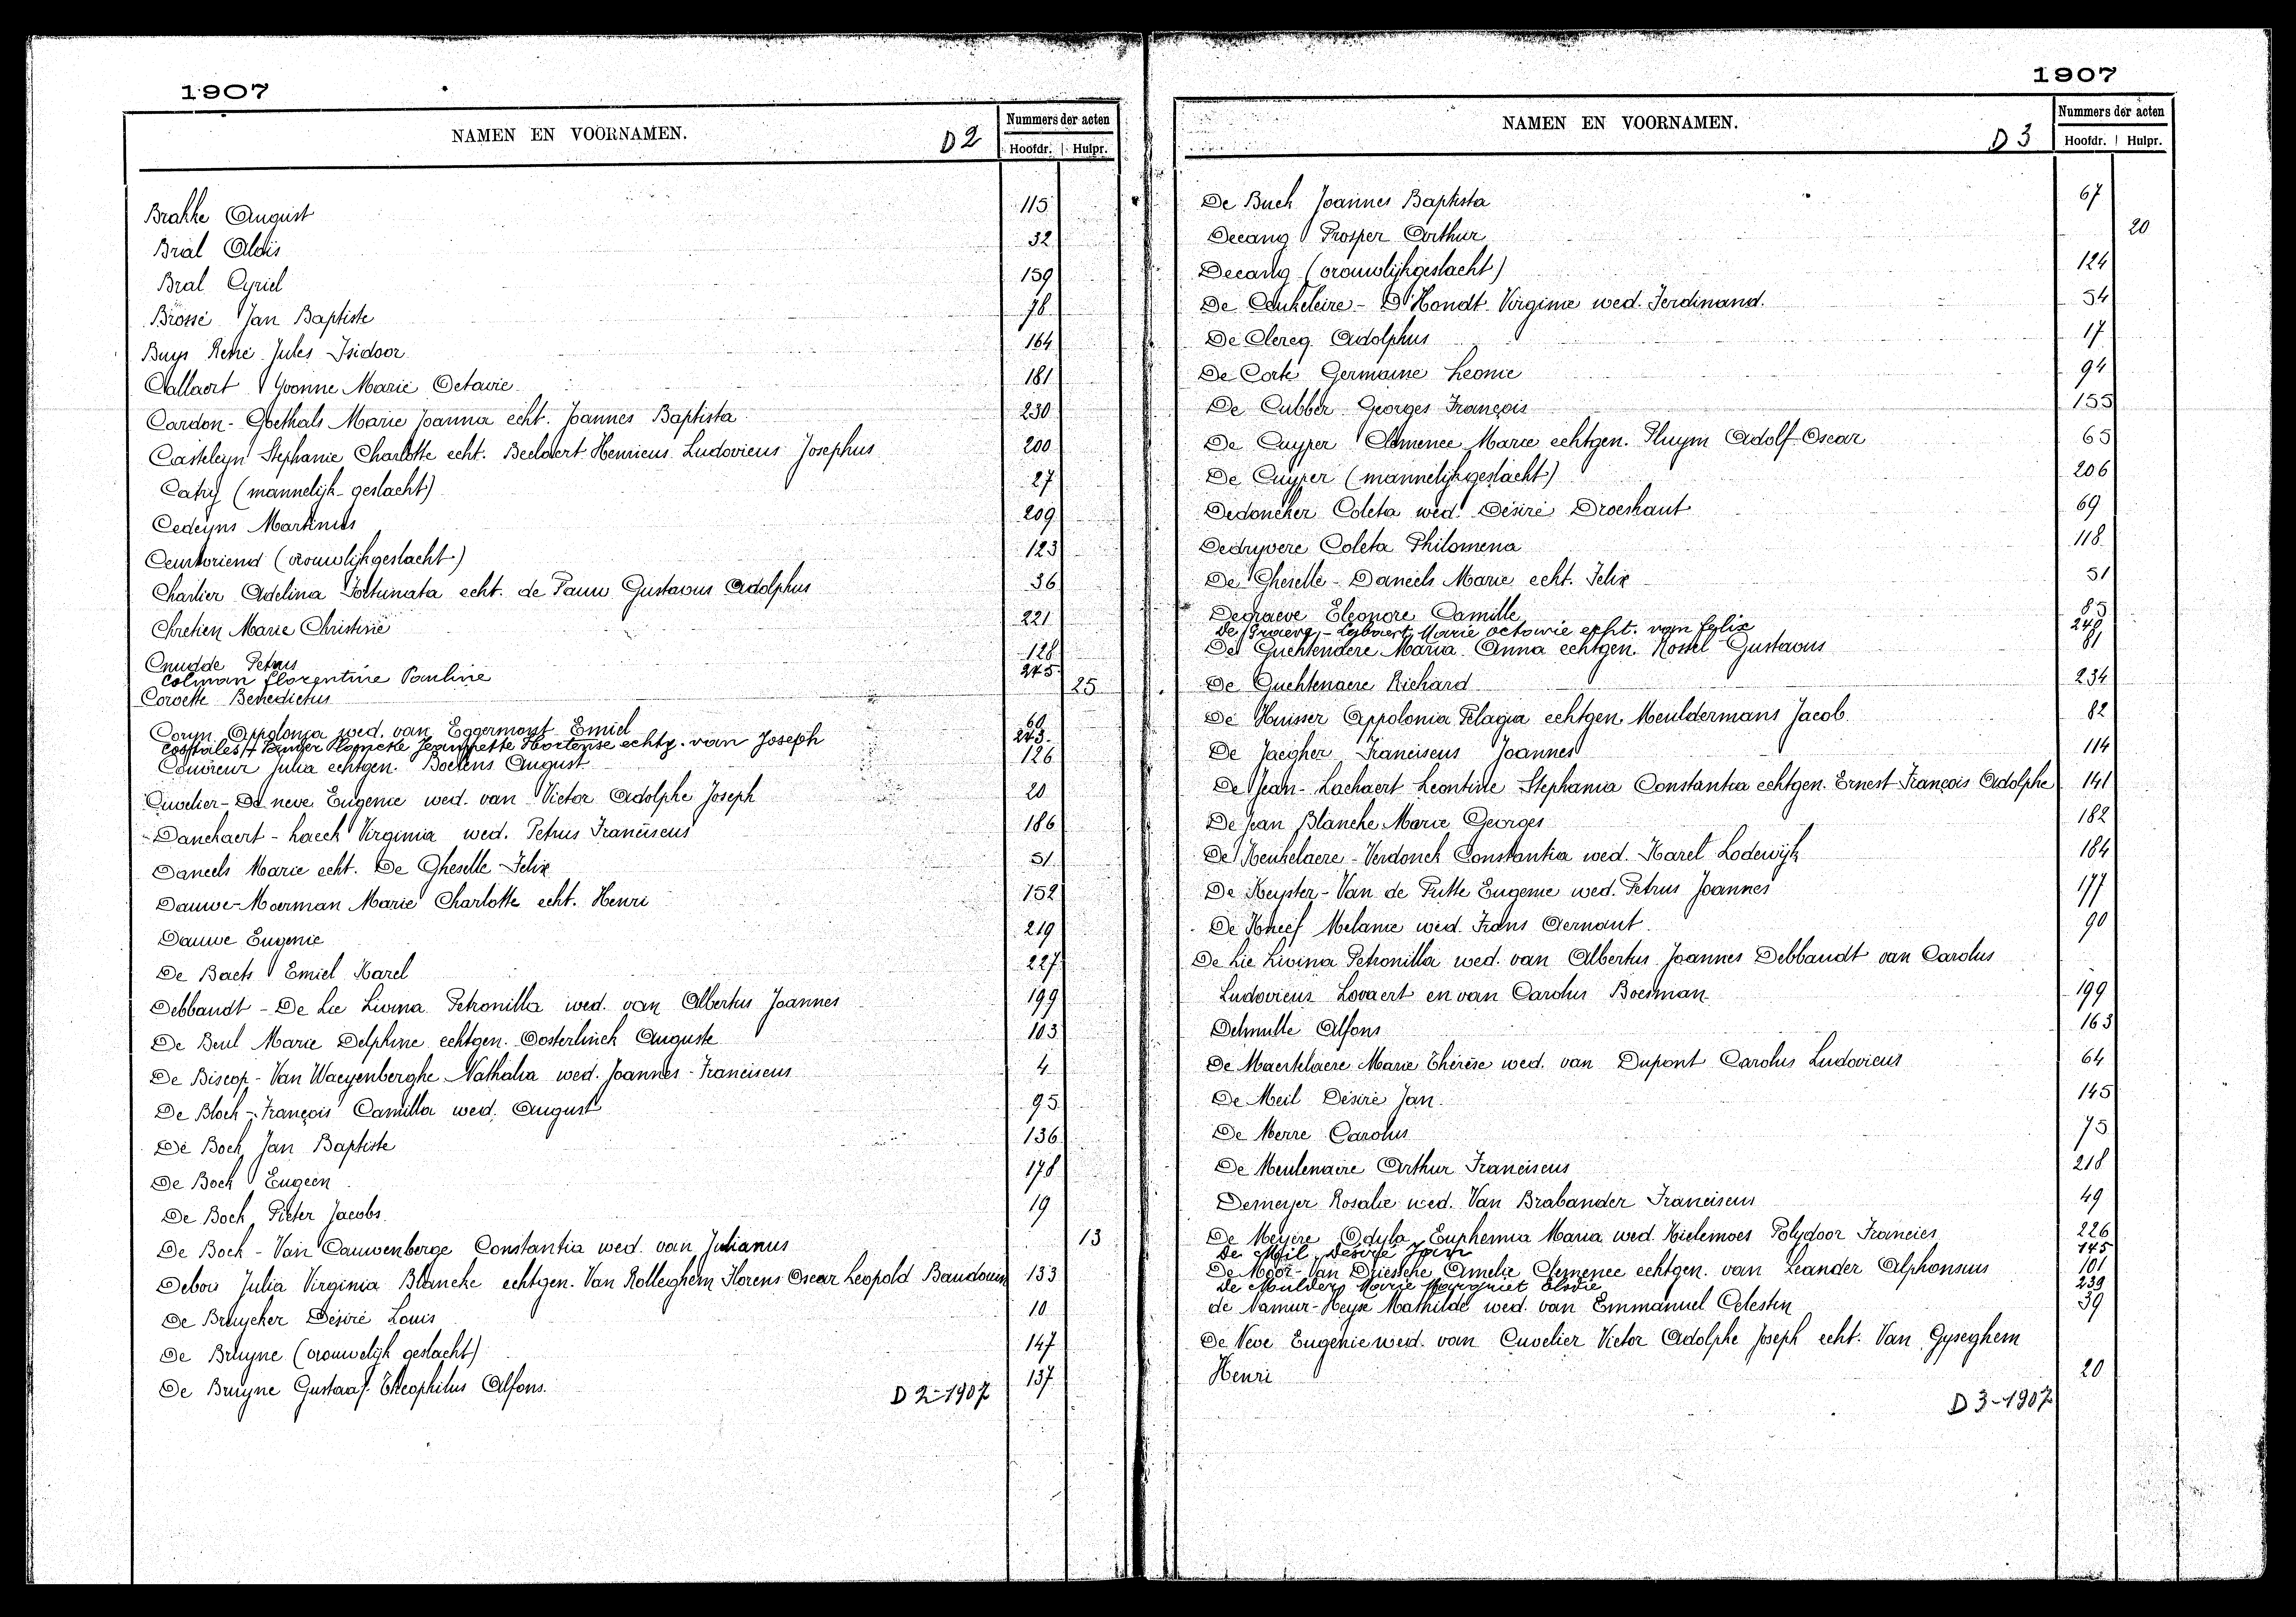 1907
NAMEN EN VOORNAMEN.
D 2
Nummers der acten
Hoofdr. Hulpr.
Brakke August 115
Bral Alois 32
Bral Cyriel 159
Brossé Jan Baptiste 78
Buys René Jules Isidoor 164
Callaert Yvonne Marie Octavie 181
Cardon-Goethals Marie Joanna echt. Joannes Baptista 230
Casteleyn Stephanie Charlotte echt. Beelaert Henricus Ludovicus Josephus 200
Catry (mannelijk-geslacht) 27
Cedeyns Martinus 209
Ceurvoriend (vrouwlijkgeslacht) 123
Charlier Adelina Fortunata echt. de Pauw Gustavus Adolphus 36
Chretien Marie Christine 221
Cnudde Petrus 128
Colman Florentine Pauline 245
Corvette Benedictus 25
Coryn Appolonia wed. van Eggermont Emiel 60
Jeannette Hortense echtg. van Joseph 243
Couvreur Julia echtgen. Boelens August 126
Cuvelier-De neve Eugenie wed. van Victor Adolphe Joseph 20
Danckaert-Laeck Virginia wed. Petrus Franciscus 186
Daneels Marie echt. De Gheselle Felix 51
Dauwe-Moerman Marie Charlotte echt. Henri 152
Dauwe Eugenie 219
De Baets Emiel Karel 227
Debbaudt-De Lie Livina Petronilla wed. van Albertus Joannes 199
De Beul Marie Delphine echtgen. Oosterlinck Auguste 103
De Biscop-Van Waeyenberghe Nathalia wed. Joannes-Franciscus 4
De Block-François Camilla wed. August 95
De Bock Jan Baptiste 136
De Bock Eugeen 178
De Bock Pieter Jacobs 19
De Bock-Van Cauwenberge Constantia wed. van Julianus 13
Debou Julia Virginia Blanche echtgen. Van Rolleghem Florens Oscar Leopold Baudouin 133
De Bruycker Désiré Louis 10
De Bruyne (vrouwelijk geslacht) 147
De Bruyne Gustaaf Theophilus Alfons 137
D 2-1907
1907
NAMEN EN VOORNAMEN.
D 3
Nummers der acten
Hoofdr. Hulpr.
De Buck Joannes Baptista 67
Decang Prosper Arthur 20
Decang (vrouwlijkgeslacht) 124
De Caukeleire-D'Hondt Virginie wed. Ferdinand. 54
De Clercq Adolphus 17
De Corte Germaine Leonie 94
De Cubber Georges François 155
De Cuyper Clemence Marie echtgen. Pluym Adolf-Oscar 65
De Cuyper (mannelijkgeslacht) 206
Dedoncker Coleta wed. Désiré Droeshaut 69
Dedryvere Coleta Philomena 118
De Gheselle-Daneels Marie echt. Felix 51
Degraeve Eleonore Camille 85
De Graeve-Lybaert Marie Octavie epht. van Felix 248
De Guchtenaere Maria Anna echtgen. Rossel Gustavus 81
De Guchtenaere Richard 234
De Huisser Appolonia Pelagia echtgen. Meuldermans Jacob 82
De Jaegher Franciscus Joannes 114
De Jean-Lachaert Leontine Stephania Constantia echtgen. Ernest François Adolphe 141
De Jean Blanche Marie Georges 182
De Keukelaere-Verdonck Constantia wed. Karel Lodewijk 184
De Keyster-Van de Putte Eugenie wed. Petrus Joannes 177
De Kneef Melanie wed. Frans Aernaut 90
De Lie Livina Petronilla wed. van Albertus Joannes Debbaudt van Carolus
Ludovicus Lovaert en van Carolus Boesman 199
Delmulle Alfons 163
De Maertelaere Marie Thérèse wed. van Dupont Carolus Ludovicus 64
De Meil Désiré Jan 145
De Merre Carolus 75
De Meulenaere Arthur Franciscus 218
Demeyer Rosalie wed. Van Brabander Franciscus 49
De Meyere Odyla Euphemia Maria wed. Kielemoes Polydoor Francies 226
De Meil Désiré Jan 145
De Moor-Van Driessche Amelie Clemence echtgen. van Leander Alphonsus 101
De Mulder Marie Margriet Elodie 239
de Namur-Heyse Mathilde wed. van Emmanuel Celestin 39
De Neve Eugenie wed. van Cuvelier Victor Adolphe Joseph echt. Van Gyseghem
Henri 20
D 3-1907